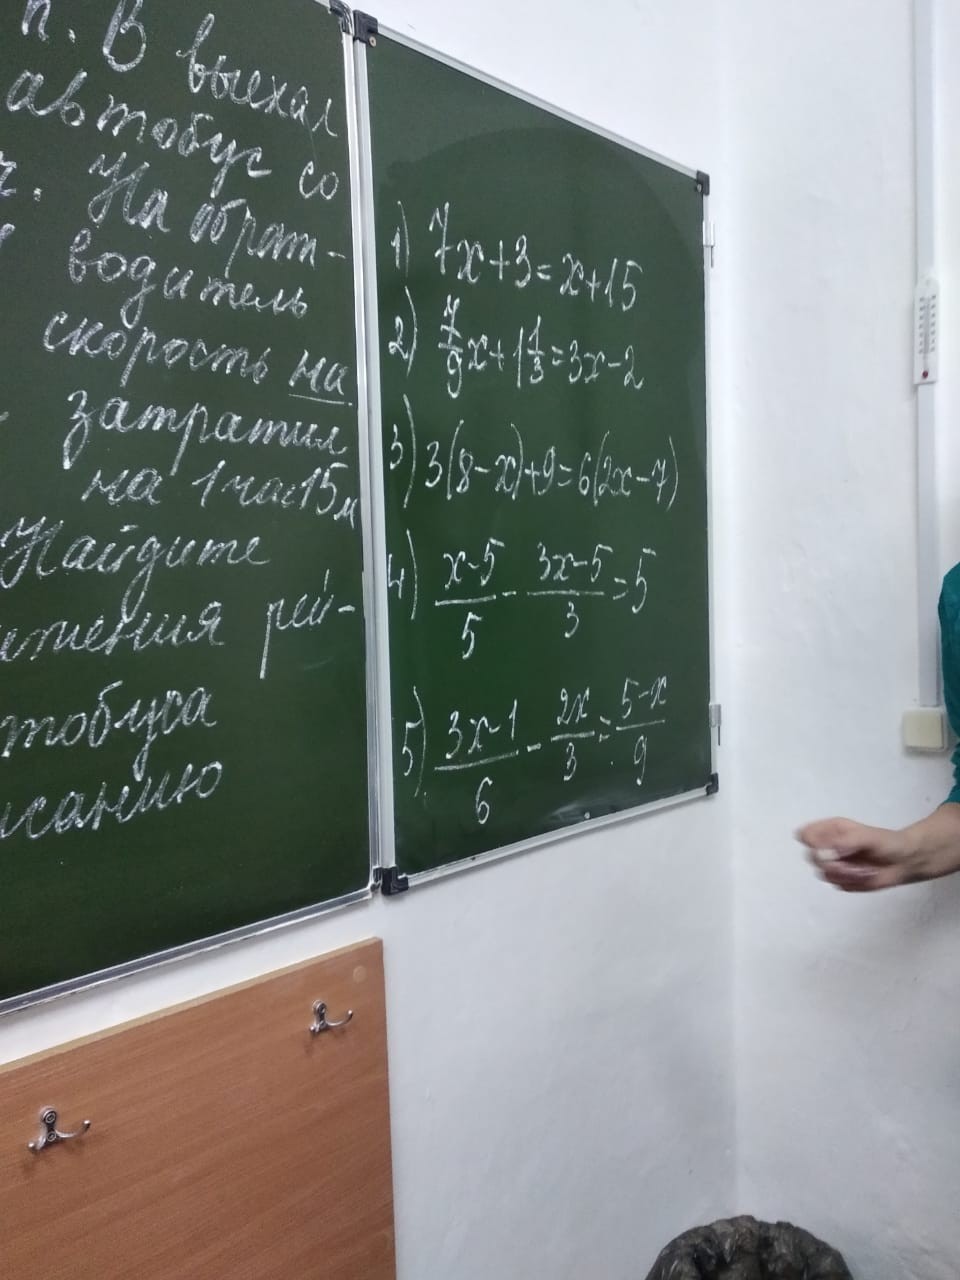 п. В выехал
автобус со
ч. На обрат-
водитель
скорость на
затратил
на 1 час 15 м
Найдите
жения рей-
тобуса
исанию
1) 7x+3=x+15
2) 7/9 x+1 1/3=3x-2
3) 3(8-x)+9=6(2x-7)
4) (x-5)/5 - (3x-5)/3 = 5
5) (3x-1)/6 - 2x/3 = (5-x)/9